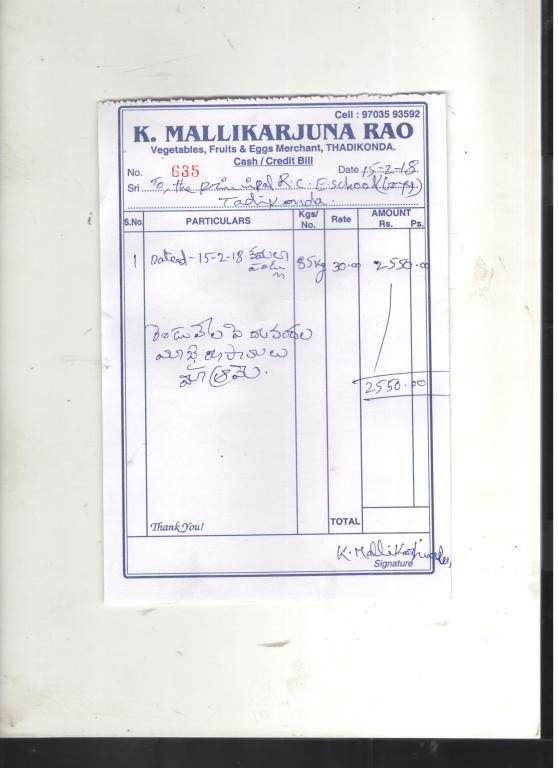 Cell : 97035 93592
K. MALLIKARJUNA RAO
Vegetables, Fruits & Eggs Merchant, THADIKONDA.
Cash / Credit Bill
No. 635 Date 15-2-18.
Sri To, the Principal R.C. E. school
Tadikonda.
S.No. PARTICULARS Kgs/ No. Rate AMOUNT Rs. Ps.
1 Dated-15-2-18 కమలా 85kg 30.00 2550.00
పండ్లు
రెండువేల ఐదువందల
యాభై రూపాయలు
మాత్రమే.
2550.00
Thank You! TOTAL
K. Mallikarjuna Rao
Signature